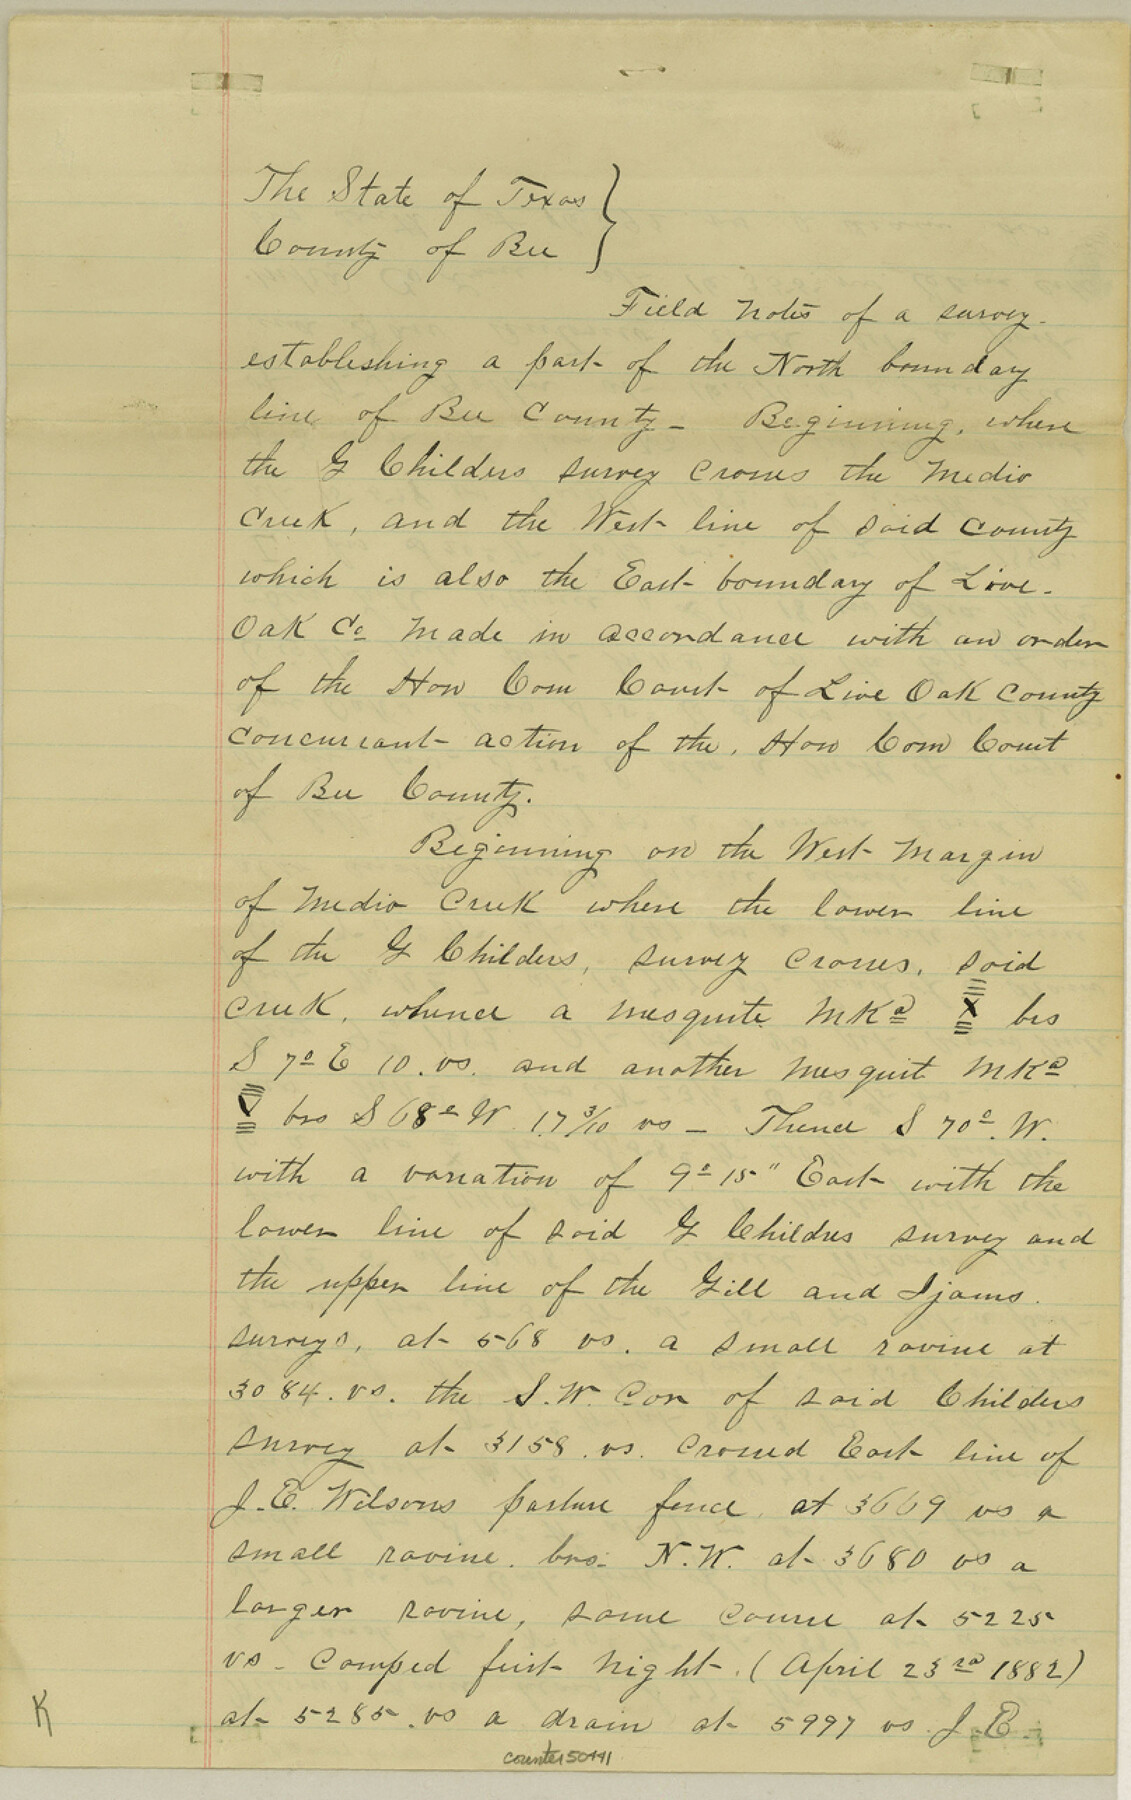 The State of Texas }
County of Bee
Field notes of a survey
establishing a part of the North boundary
line of Bee County - Beginning, where
the G Childers survey crosses the Medio
Creek, and the West line of said County
which is also the East boundary of Live
Oak Co made in accordance with an order
of the Hon Com Court of Live Oak County
concurrant action of the, Hon Com Court
of Bee County.
Beginning on the West Margin
of Medio Creek where the lower line
of the G Childers, survey crosses, said
creek, whence a mesquite MKd X brs
S 7° E 10. vs. and another mesquit MKd
V brs S 68° W 17 3/10 vs - Thence S 70° W.
with a variation of 9° 15" East with the
lower line of said G Childres survey and
the upper line of the Gill and Ijams
surveys, at 568 vs. a small ravine at
3084. vs. the S.W. Cor of said Childers
survey at 3158 vs. crossed East line of
J.E. Wilsons pasture fence at 3669 vs a
small ravine. brs. N.W. at 3680 vs a
larger ravine, same course at 5225
vs - Camped first night. (April 23rd 1882)
at 5285 vs a drain at 5997 vs J.E.
K
counter 50441